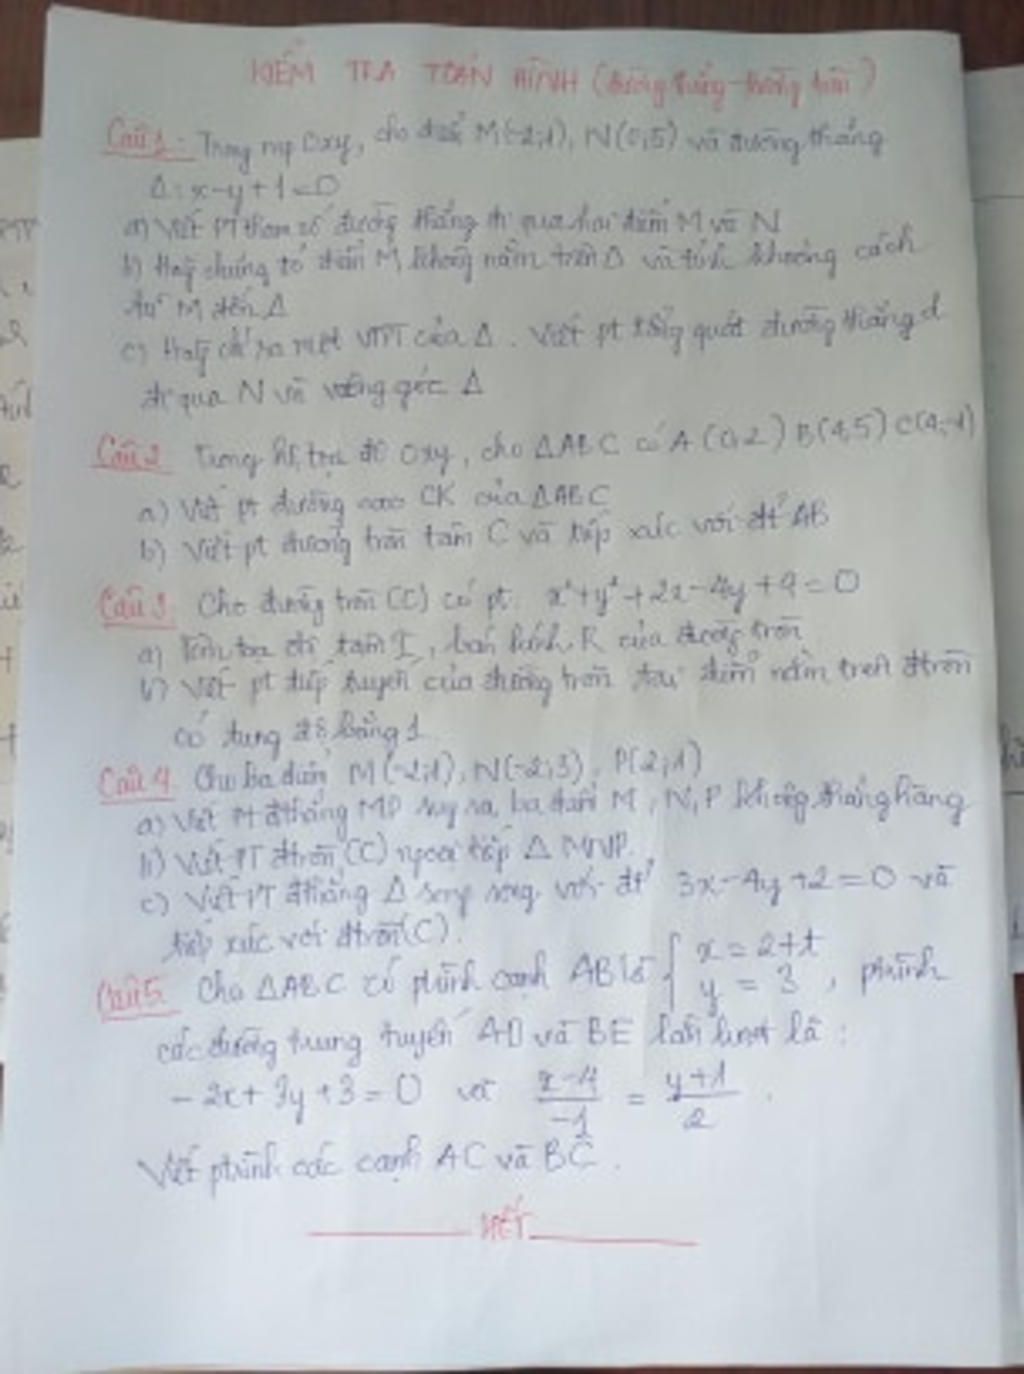 KIỂM TRA TOÁN HÌNH (đường thẳng - đường tròn)
Câu 1: Trong mp Oxy, cho điểm M(-2;1), N(0;5) và đường thẳng
Δ: x-y+1=0
a) Viết PT tham số đường thẳng đi qua hai điểm M và N
b) Hãy chứng tỏ điểm M không nằm trên Δ và tính khoảng cách
từ M đến Δ
c) Hãy chỉ ra một VTPT của Δ. Viết pt tổng quát đường thẳng d
đi qua N và vuông góc Δ
Câu 2 Trong hệ tọa độ Oxy, cho ΔABC có A(0;2) B(4;5) C(4;-1)
a) Viết pt đường cao CK của ΔABC
b) Viết pt đường tròn tâm C và tiếp xúc với đt AB
Câu 3 Cho đường tròn (C) có pt: x²+y²+2x-4y+4=0
a) Tìm tọa độ tâm I, bán kính R của đường tròn
b) Viết pt tiếp tuyến của đường tròn tại điểm nằm trên đtròn
có tung độ bằng 1
Câu 4 Cho ba điểm M(-2;1), N(-2;3), P(2;1)
a) Viết PT đthẳng MP suy ra ba điểm M, N, P không thẳng hàng
b) Viết PT đtròn (C) ngoại tiếp Δ MNP.
c) Viết PT đthẳng Δ song song với đt 3x-4y+2=0 và
tiếp xúc với đtròn (C).
Câu 5 Cho ΔABC có ptrình cạnh AB là { x=2+t
y = 3 , ptrình
các đường trung tuyến AD và BE lần lượt là:
-2x+3y+3=0 và x-4/-1 = y+1/2 .
Viết ptrình các cạnh AC và BC.
HẾT